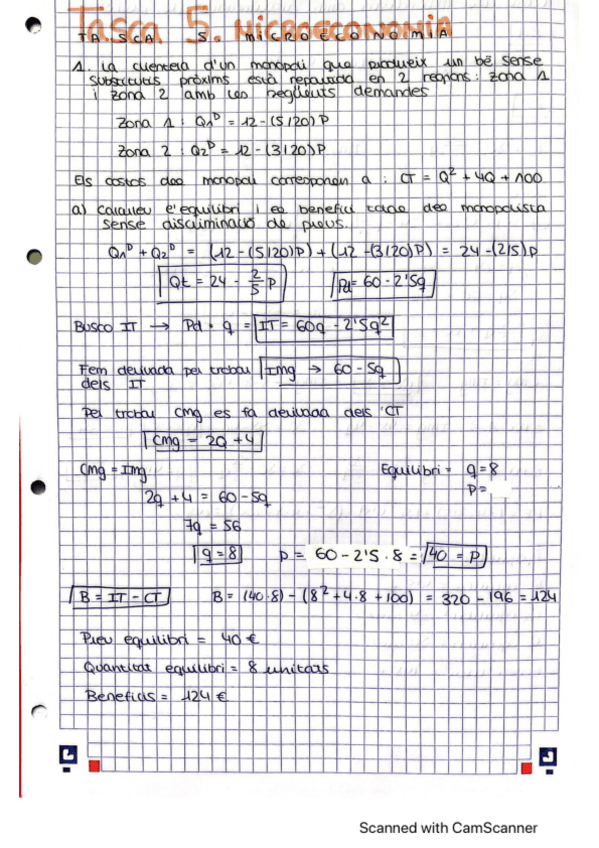 Tasca 5. Microeconomia
TASCA 5. MICROECONOMIA
1. La clientela d'un monopoli que produeix un bé sense
substitutius pròxims està repartida en 2 regions: zona 1
i zona 2 amb les següents demandes
Zona 1: Q1ᴰ = 12 - (5/20)P
Zona 2: Q2ᴰ = 12 - (3/20)P
Els costos del monopoli corresponen a: CT = Q² + 4Q + 100
a) Calculeu l'equilibri i el benefici total del monopolista
sense discriminació de preus.
Q1ᴰ + Q2ᴰ = (12 - (5/20)P) + (12 - (3/20)P) = 24 - (2/5)P
Qt = 24 - 2/5 P Pd = 60 - 2'5q
Busco IT → Pd · q = IT = 60q - 2'5q²
Fem derivada per trobar Img → 60 - 5q
dels IT
Per trobar Cmg es fa derivada dels CT
Cmg = 2Q + 4
Cmg = Img Equilibri = q = 8
P =
2q + 4 = 60 - 5q
7q = 56
q = 8 P = 60 - 2'5 · 8 = 40 = P
B = IT - CT B = (40·8) - (8² + 4·8 + 100) = 320 - 196 = 124
Preu equilibri = 40 €
Quantitat equilibri = 8 unitats
Beneficis = 124 €
Scanned with CamScanner